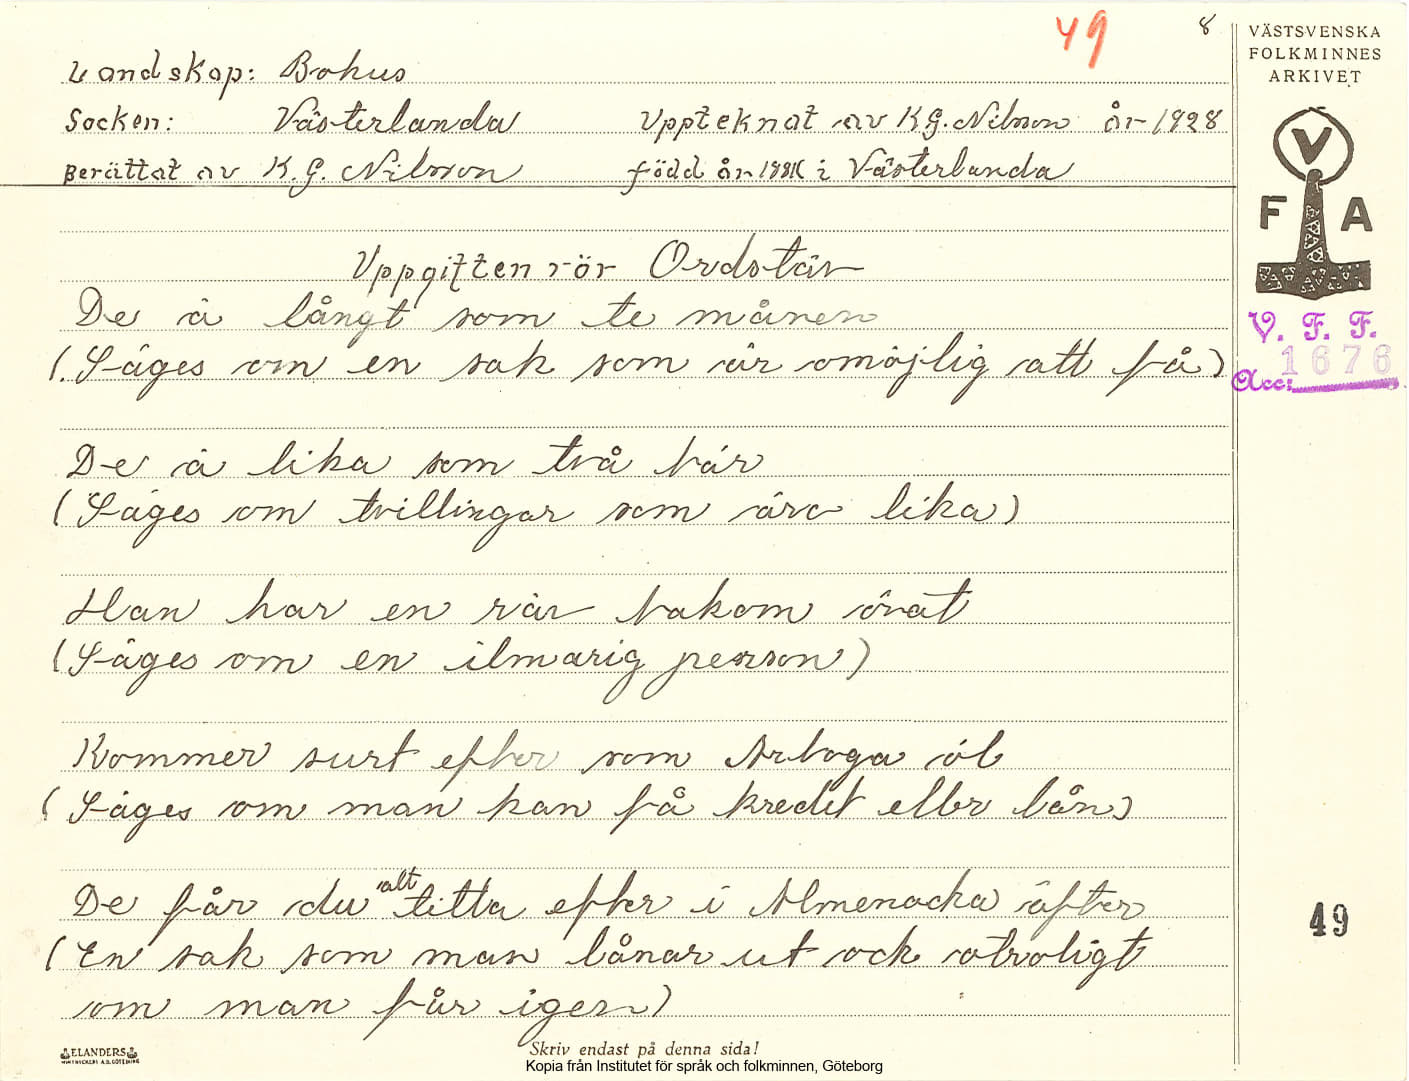 49
8
VÄSTSVENSKA
FOLKMINNES
ARKIVET
Landskap: Bohus
Socken: Västerlanda Uppteknat av K.G. Nilsson år 1928
Berättat av K. G. Nilsson född år i Västerlanda
V
F A
Uppgiften rör Ordstäv
De ä långt som te månen
(Säges om en sak som är omöjlig att få)
V. F. F.
Acc: 1676
De ä lika som två bär
(Säges om tvillingar som äro lika)
Han har en räv bakom örat
(Säges om en ilmarig person)
Kommer surt efter som Arboga öl
(Säges om man kan få kredit eller lån)
De får du alt titta efter i Almenacka äfter
(En sak som man lånar ut ock otroligt
om man får igen)
49
ELANDERS
Skriv endast på denna sida!
Kopia från Institutet för språk och folkminnen, Göteborg